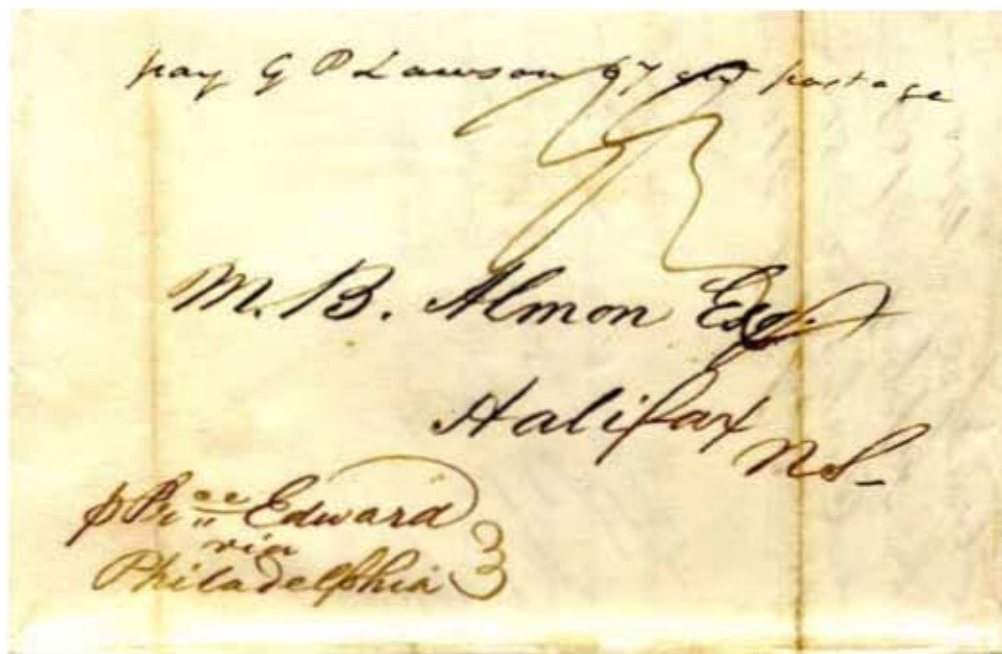 pay G P Lawson 67 cts postage
M. B. Almon Esq.
Halifax
N S-
p Prce Edward
via
Philadelphia